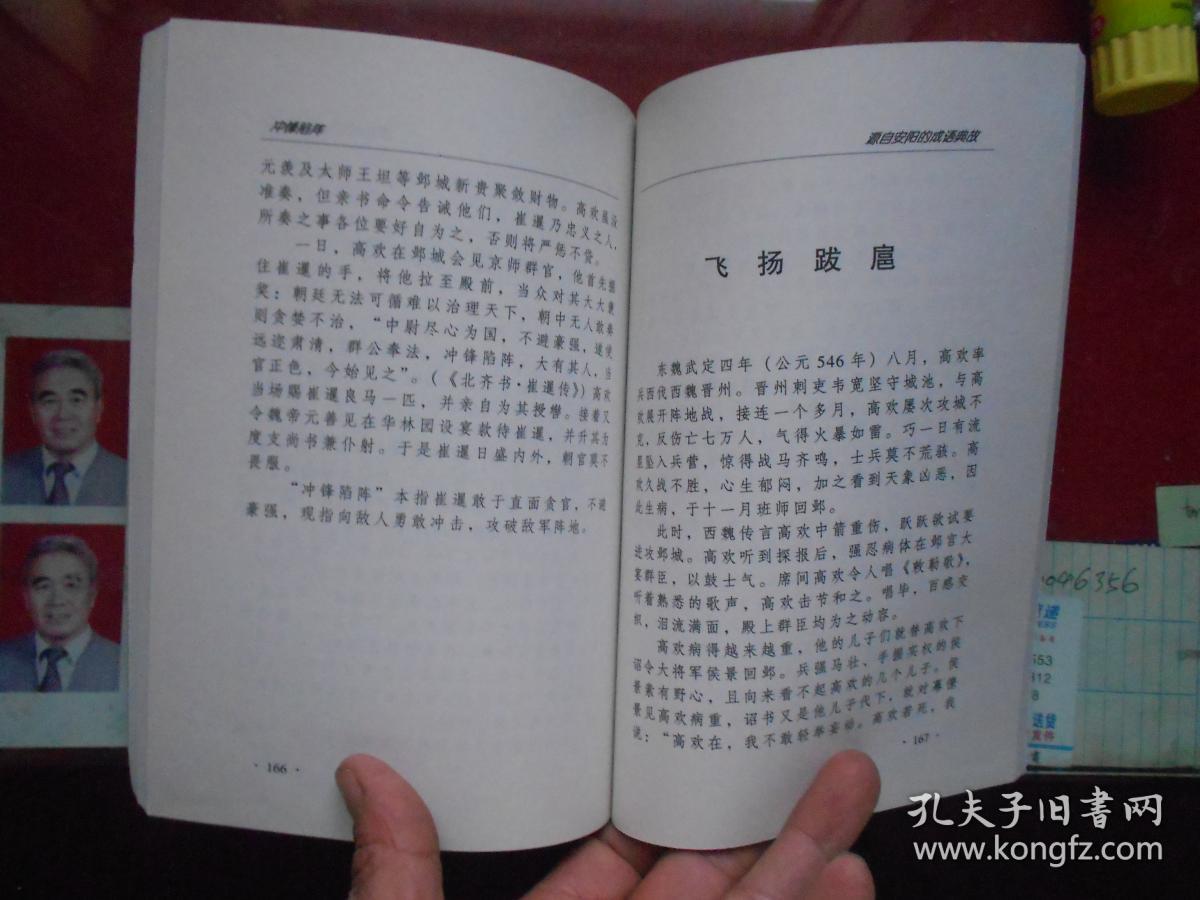 冲锋陷阵
元羡及太师王坦等邺城新贵聚敛财物。高欢虽没
准奏，但亲书命令告诫他们，崔暹乃忠义之人，
所奏之事各位要好自为之，否则将严惩不贷。
一日，高欢在邺城会见京师群官，他首先握
住崔暹的手，将他拉至殿前，当众对其大大褒
奖：朝廷无法可循难以治理天下，朝中无人敢奏
则贪婪不治，“中尉尽心为国，不避豪强，遂使
远迩肃清，群公奉法，冲锋陷阵，大有其人，当
官正色，今始见之”。（《北齐书·崔暹传》）高欢
当场赐崔暹良马一匹，并亲自为其授辔。接着又
令魏帝元善见在华林园设宴款待崔暹，并升其为
度支尚书兼仆射。于是崔暹日盛内外，朝官莫不
畏服。
“冲锋陷阵”本指崔暹敢于直面贪官，不避
豪强，现指向敌人勇敢冲击，攻破敌军阵地。
·166·
源自安阳的成语典故
飞扬跋扈
东魏武定四年（公元546年）八月，高欢率
兵西伐西魏晋州。晋州刺吏韦宽坚守城池，与高
欢展开阵地战，接连一个多月，高欢屡次攻城不
克，反伤亡七万人，气得火暴如雷。巧一日有流
星坠入兵营，惊得战马齐鸣，士兵莫不荒骇。高
欢久战不胜，心生郁闷，加之看到天象凶恶，因
此生病，于十一月班师回邺。
此时，西魏传言高欢中箭重伤，跃跃欲试要
进攻邺城。高欢听到探报后，强忍病体在邺宫大
宴群臣，以鼓士气。席间高欢令人唱《敕勒歌》，
听着熟悉的歌声，高欢击节和之。唱毕，百感交
织，泪流满面，殿上群臣均为之动容。
高欢病得越来越重，他的儿子们就替高欢下
诏令大将军侯景回邺。兵强马壮、手握实权的侯
景素有野心，且向来看不起高欢的几个儿子。侯
景见高欢病重，诏书又是他儿子代下，就对幕僚
说：“高欢在，我不敢轻举妄动。高欢若死，我
·167·
6356
553
312
8
送货
发件
孔夫子旧书网
www.kongfz.com